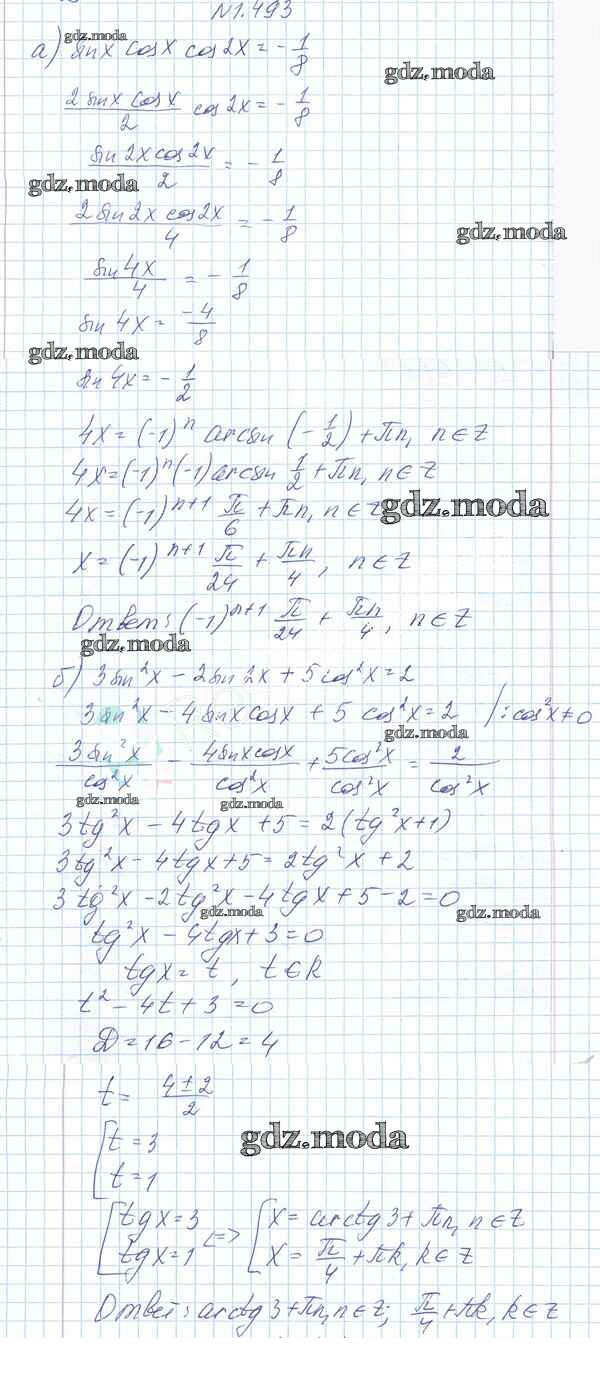 N1.493
gdz.moda
а) sinx cosx cos2x = - 1/8
gdz.moda
2sinx cosx/2 cos2x = - 1/8
sin2x cos2x/2 = - 1/8
gdz.moda
2sin2x cos2x/4 = - 1/8
gdz.moda
sin4x/4 = - 1/8
sin4x = -4/8
gdz.moda
sin4x = - 1/2
4x = (-1)^n arcsin (- 1/2) + πn, n∈Z
4x = (-1)^n (-1) arcsin 1/2 + πn, n∈Z
4x = (-1)^n+1 π/6 + πn, n∈Z
gdz.moda
x = (-1)^n+1 π/24 + πn/4, n∈Z
Ответ: (-1)^n+1 π/24 + πn/4, n∈Z
gdz.moda
б) 3sin²x - 2sin2x + 5cos²x = 2
3sin²x - 4sinxcosx + 5 cos²x = 2 /: cos²x ≠ 0
gdz.moda
3sin²x/cos²x - 4sinxcosx/cos²x + 5cos²x/cos²x = 2/cos²x
gdz.moda gdz.moda
3tg²x - 4tgx + 5 = 2(tg²x+1)
3tg²x - 4tgx + 5 = 2tg²x + 2
3tg²x - 2tg²x - 4tgx + 5 - 2 = 0
gdz.moda gdz.moda
tg²x - 4tgx + 3 = 0
tgx = t, t∈R
t² - 4t + 3 = 0
D = 16 - 12 = 4
t = 4±2/2
gdz.moda
[t = 3
t = 1
[tgx = 3 <=> [x = arctg3 + πn, n∈Z
tgx = 1 x = π/4 + πk, k∈Z
Ответ: arctg3 + πn, n∈Z; π/4 + πk, k∈Z